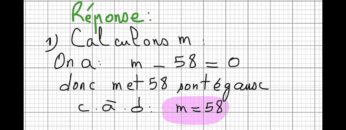 Réponse:
1) Calculons m:
On a: m - 58 = 0
donc m et 58 sont égaux
c.à.d: m = 58